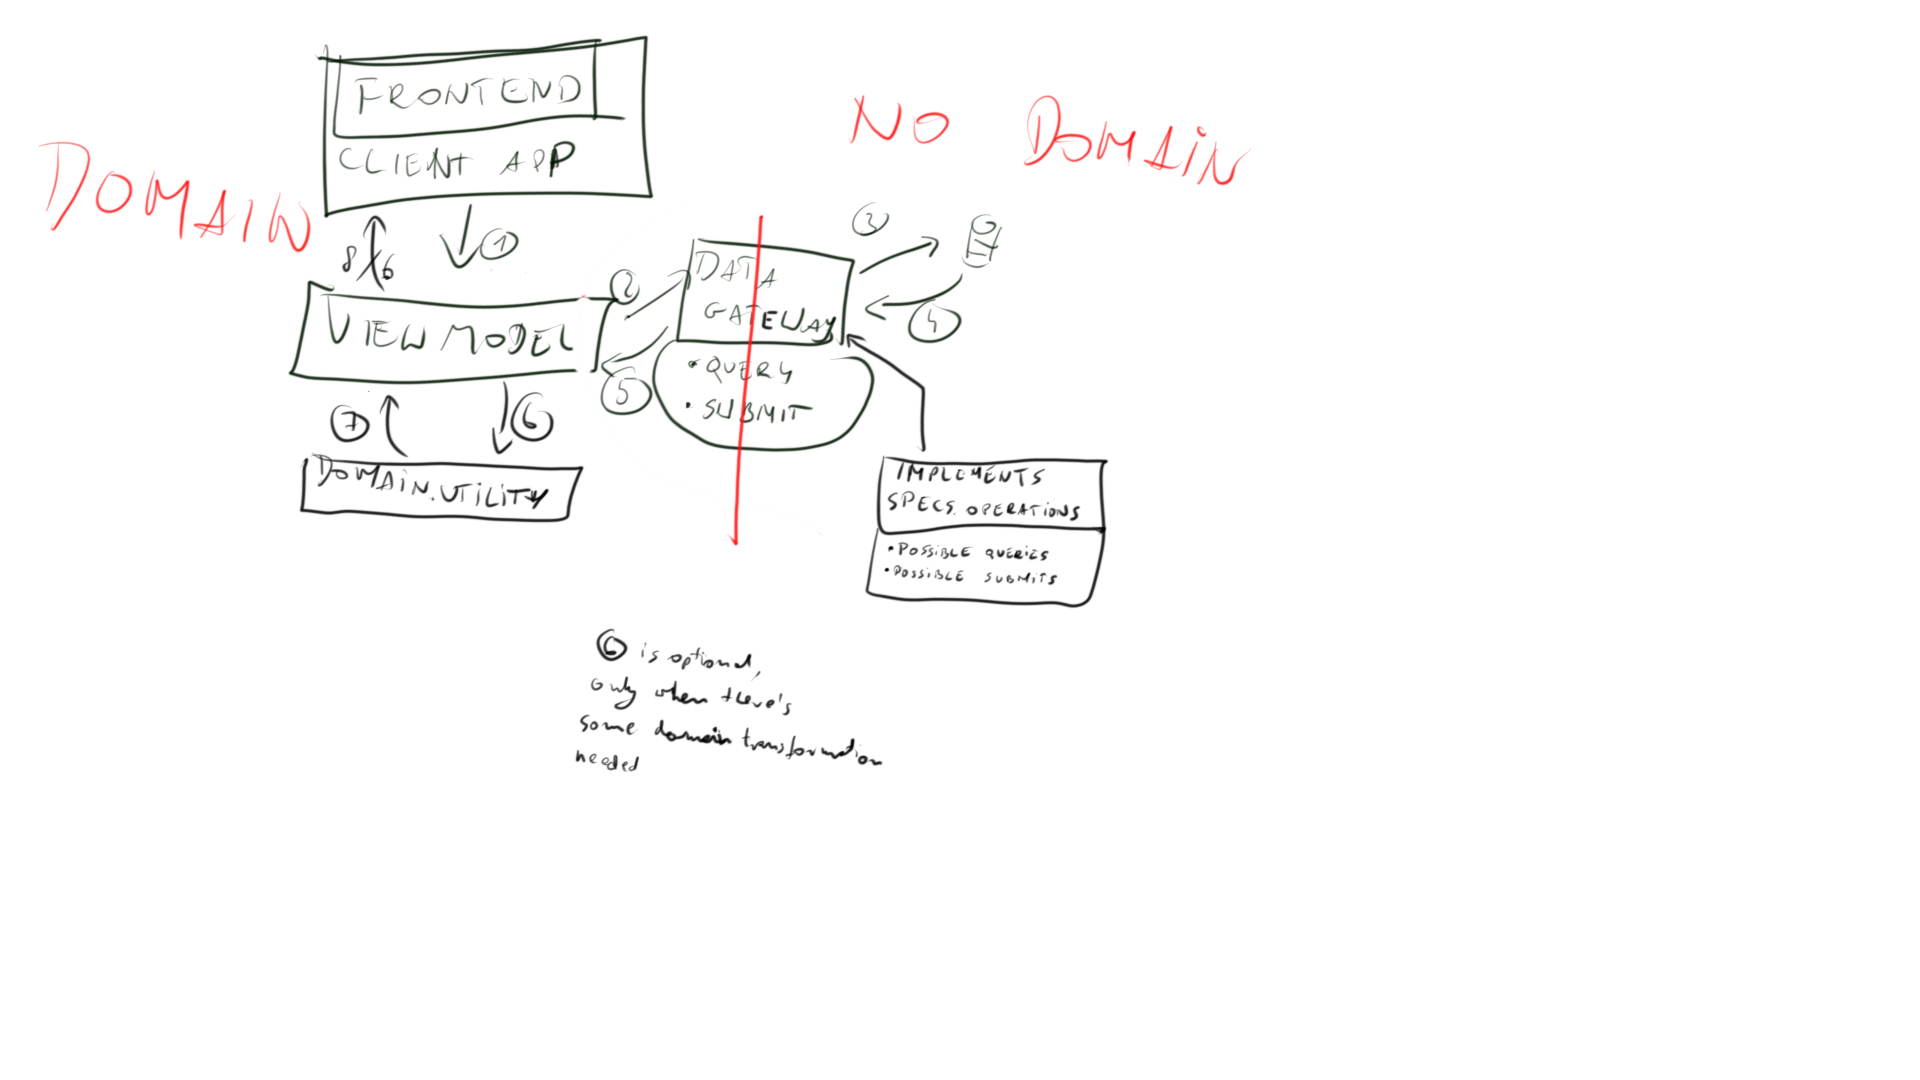 FRONTEND
CLIENT APP
DOMAIN
NO DOMAIN
8/6
1
2
3
DATA
GATEWAY
4
VIEW MODEL
5
• QUERY
• SUBMIT
7
6
DOMAIN.UTILITY
IMPLEMENTS
SPECS. OPERATIONS
• POSSIBLE QUERIES
• POSSIBLE SUBMITS
6 is optional,
only when there's
some domain transformation
needed